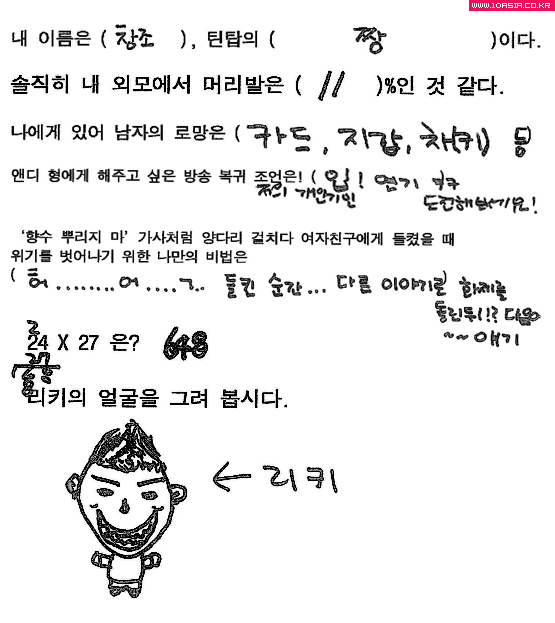 WWW.10ASIA.CO.KR
내 이름은 ( 창조 ), 틴탑의 ( 짱 )이다.
솔직히 내 외모에서 머리발은 ( // )%인 것 같다.
나에게 있어 남자의 로망은 ( 카드, 지갑, 차(키) 등
앤디 형에게 해주고 싶은 방송 복귀 조언은! ( 입! 연기
저의 개인기인
도전해보세요!
‘향수 뿌리지 마’ 가사처럼 양다리 걸치다 여자친구에게 들켰을 때
위기를 벗어나기 위한 나만의 비법은
( 허........어....ㄱ.. 들킨 순간... 다른 이야기로 화제를
돌린 후!? 다음
~~ 얘기
24 X 27 은? 648
리키의 얼굴을 그려 봅시다.
← 리키